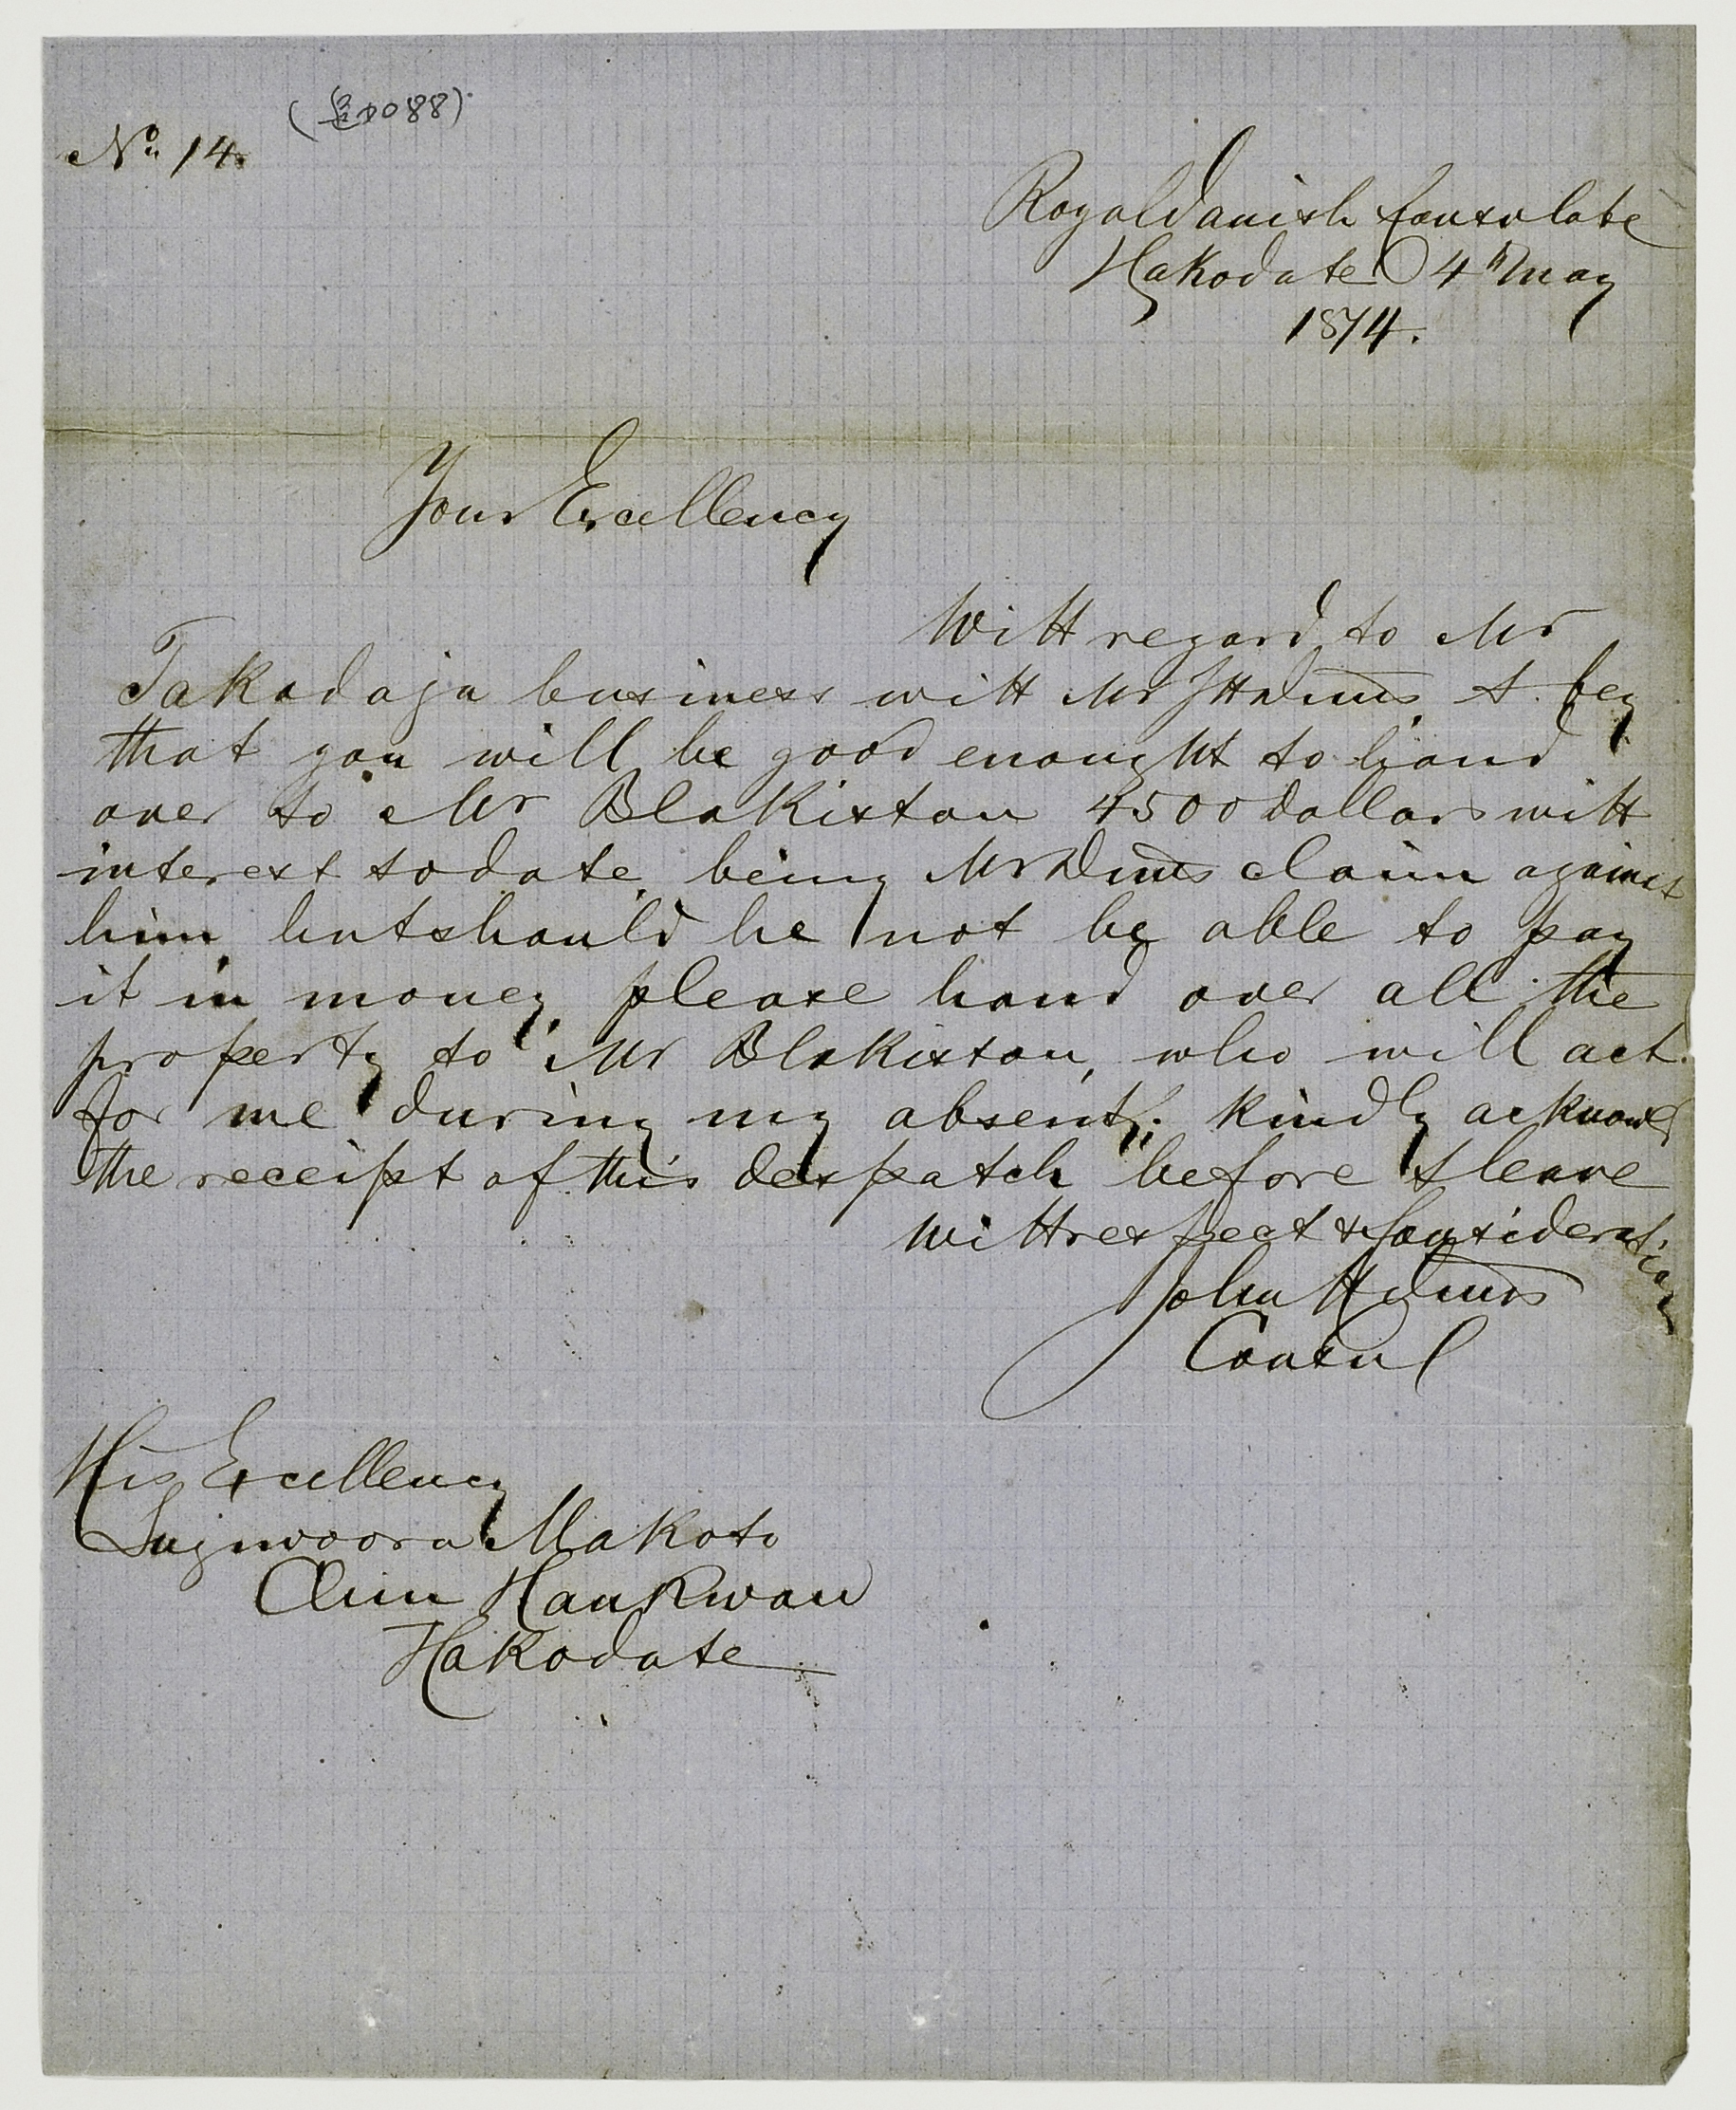 No 14.
Royal Danish Consulate
Hakodate 4th May
1874.
Your Excellency
With regard to Mr
Takadaja business with Mr JH Duus I beg
that you will be good enought to hand
over to Mr Blakiston 4500 dollars with
interest to date, being Mr Duus claim against
him but should he not be able to pay
it in money, please hand over all the
property to Mr Blakiston, who will act
for me during my absent; kindly acknowl
the receipt of this despatch before I leave
With respect & Consideration
John H Duus
Consul
His Excellency
Sugiwoora Makoto
Hankwan
Hakodate